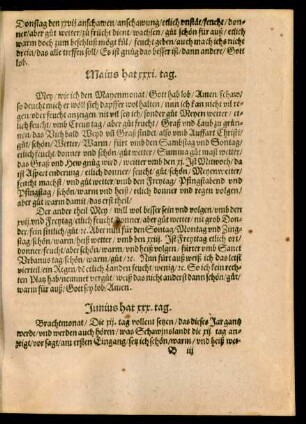 Donstag den xviij anschawen/anschawung/etlich vnstät/feucht/ don-
ner/aber gůt wetter/zů frücht dient/wachsen/ gůt schön für auß/ etlich
warm doch zum beschluß mögt fül/ feucht geben/auch mach ichs nicht
, das alle treffen soll/ Es ist gnůg das besser ist/dann andere/ Gott
lob.
Maius hat xxxi. tag.
Mey/ wie ich den Mayenmonat/ Gott hab lob/ Amen. schaw/
so deucht mich er woll sich dapffer wol halten/ nun ich kan nicht vil re-
gen oder feucht anzeigen nit vil sey ich/ sonder gůt Meyen wetter/ et-
lich feucht/ vmb Creutz tag/ aber gůt feucht/ Graß vnd Laub zu grü-
nen/ das Viech bald Weyd vnd Graß findet/ also vnd Auffart Christi/
gůt/ schön/ Wetter/ Warm/ fürt vmb den Sambstag vnd Sontag/
etlich feucht donner vnd schön/ gůt wetter/ Summa gůt mast wetter/
das Graß vnd Hew gnůg wird/ weiter vmb den xj. Ist Mitwoch/ da
ist Aspect enderung/ etlich donner/ feucht/ gůt schön/ Meyen wetter/
feucht machst/ vnd gůt weiter/ vmb den Freytag/ Pfingstabend vnd
Pfingstag/ schön/ warm vnd heiß/ etlich donner vnd regen volgen/
aber gůt warm damit/ das erst theil/
Der ander theil Mey/ will wol besser sein vnd volgen/ vmb den
xvij. vnd Freytag/ etlich feucht donner/ aber gůt wetter/ nit grob Don-
der/ sein sinlich/ gůt ꝛc. Aber nun für den Sontag/ Montag vnd Zing-
stag/ schön/ warm/ heiß wetter/ vmb den xxiij. Ist Freytag etlich ort/
donner/ feucht/ aber schön/ warm/ vnd heiß/ volgen/ fürter vnd Sanct
Vrbanus tag/ schön/ warm/ gůt/ ꝛc. Nun fürt auß weiß ich das letst
vierteil/ ein Regen/ etlich Landen feucht wenig/ ꝛc. So ich kein rech-
ten Platz hab/ nemmet vergůt/ weiß das nicht anders/ dann schön/ gůt/
warm für auß/ Gott sey lob/ Amen.
Iunius hat xxx. tag.
Brachmonat/ Die xij. tag vollent setzen/ das dieses Jar gantz
werde/ vnd werden auch hören/ was Schawinslandt die xij. tag an-
zeigt/ vor sagt/ am ersten Eingang/ setz ich schön/ warm/ vnd heiß wet-
D iij